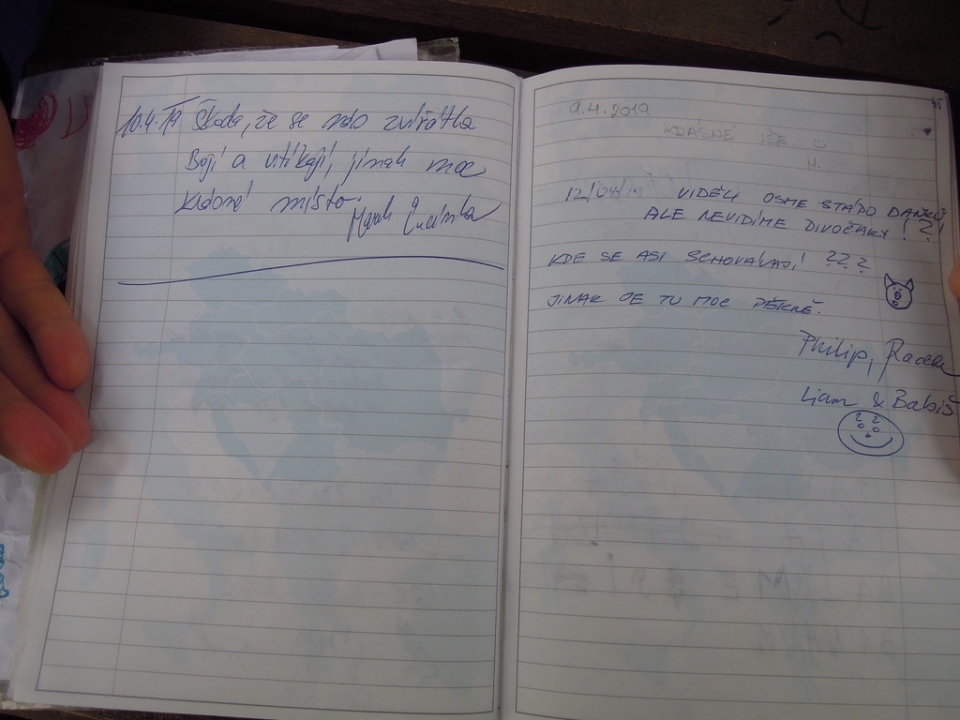 10.4.19 Škoda, že se nás zvířátka
Bojí a utíkají, jinak moc
krásné místo.
Marek
9.4.2019
KRÁSNÉ VŠE
M.
12/04/19 VIDĚLI JSME STÁDO DAŇKŮ
ALE NEVIDÍME DIVOČÁKY! ?!
KDE SE ASI SCHOVÁVAJÍ ???
JINAK JE TU MOC PĚKNĚ.
Philip, Radka
Liam & Babiš